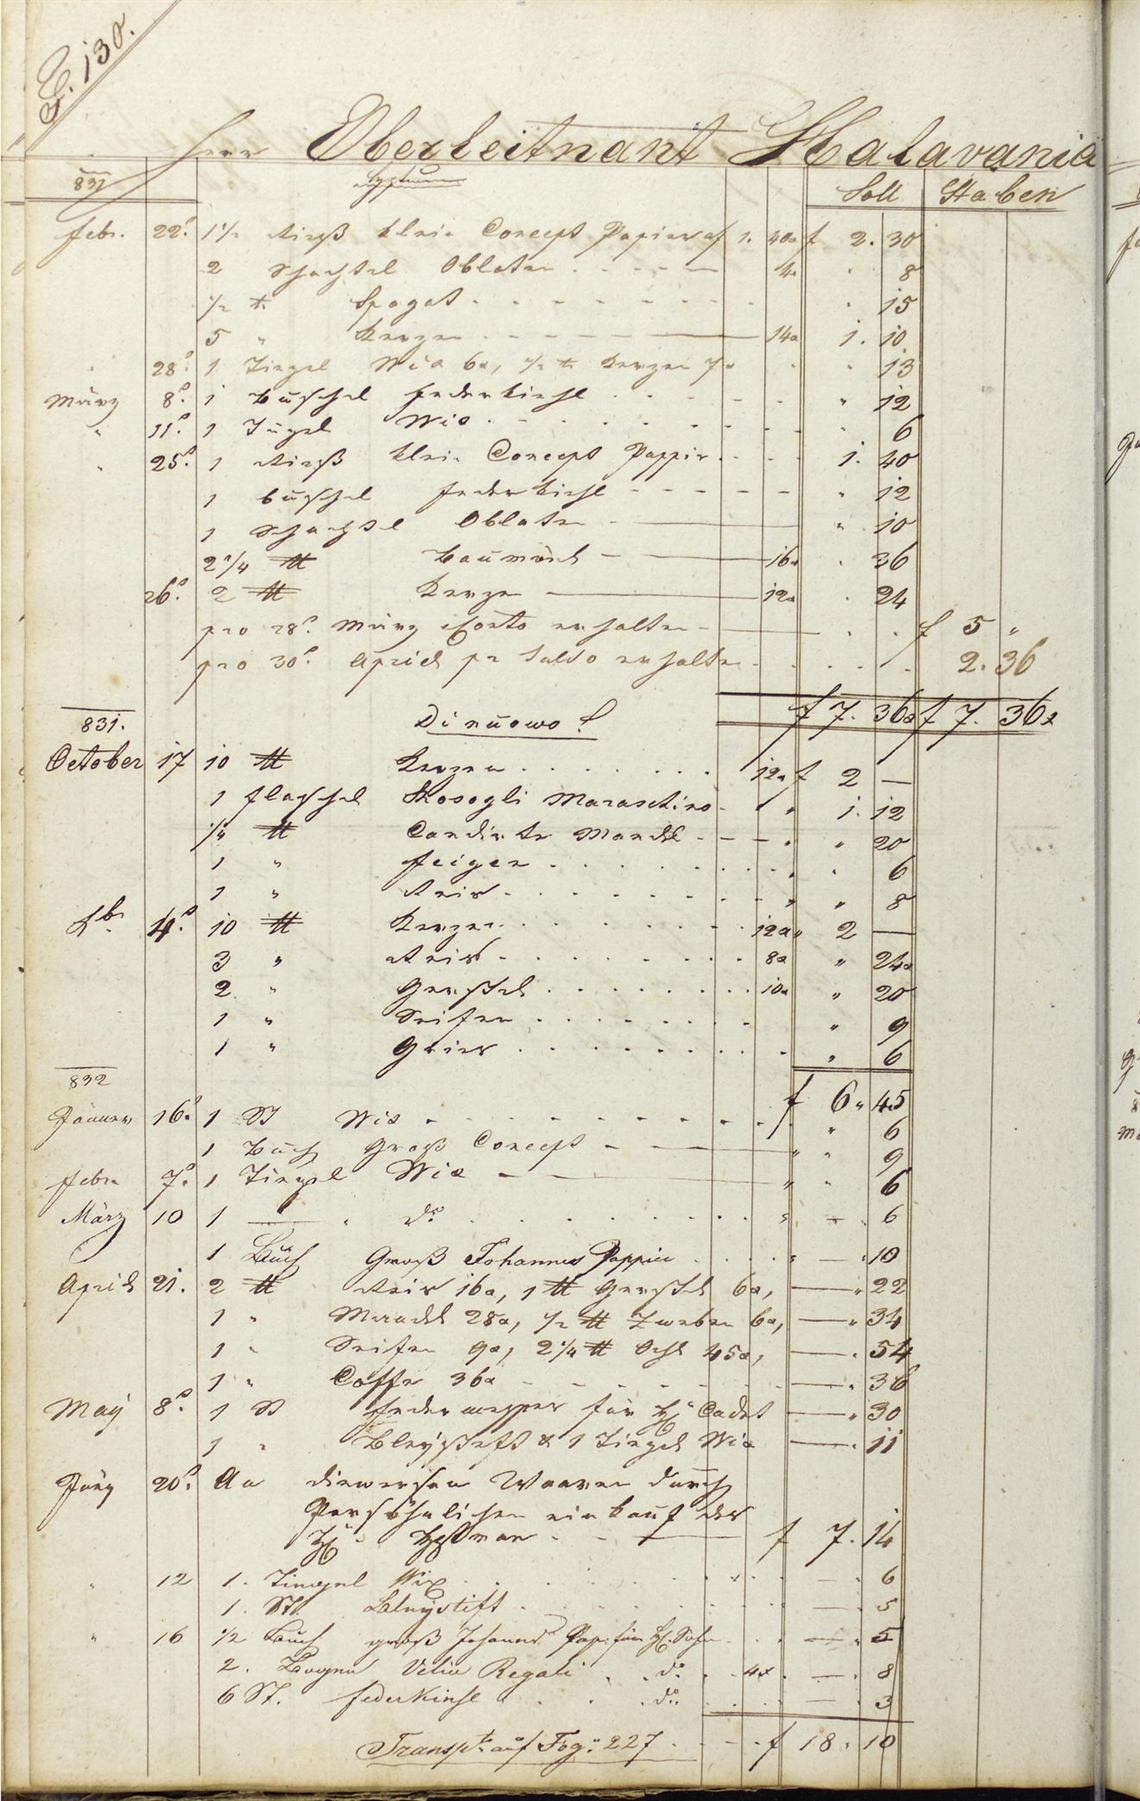 F. 130.
Herr Oberleitnant Halavania
831
Soll Haben
Febr. 22. 1 1/2 Rieß klein Concept Papier af 1. 40x f 2. 30
2 Schachtel Oblaten 4x " 8
1/2 ℔ Spagat " 15
5 " Kerzen 14x 1. 10
28. 1 Tiegel Wix 6x, 1/2 ℔ Kerzen 7x " 13
März 8. 1 Büschel Federkiehl " 12
" 11. 1 Tiegel Wix " 6
" 25. 1 Rieß klein Concept Pappir 1. 40
1 Büschel Federkiehl " 12
1 Schachtel Oblaten " 10
2 1/4 ℔ Baumöhl 16x " 36
26. 2 ℔ Kerzen 12x " 24
pro 28. März Conto erhalten f 5 "
pro 30. April pr Saldo erhalten 2. 36
f 7. 36x f 7. 36x
831. Di nuowo
October 17 10 ℔ Kerzen 12x f 2 —
1 Flaschel Rosogli Maraschino " 1. 12
1/4 ℔ Candirte Mandl " 20
1 " Feigen " 6
1 " Reis " 8
Xbr. 4. 10 ℔ Kerzen 12x " 2 —
3 " Reis 8x " 24x
2 " Gerstel 10x " 20
1 " Seifen " 9
1 " Gries " 6
832 f 6 " 45
Jänner 16. 1 St Wix " 6
1 Buch Groß Concept " 9
Febr. 7. 1 Tiegel Wix " 6
März 10 1 — " do. — " 6
1 Buch Groß Johannes Pappier — " 10
April 21. 2 ℔ Reis 16x, 1 ℔ Gerstel 6x, — " 22
1 " Mandl 28x, 1/2 ℔ Zweben 6x, — " 34
1 " Seifen 9x, 2 1/4 ℔ Oehl 45x, — " 54
1 " Coffe 36x — " 36
May 8. 1 St Federmesser für H: Cadet — " 30
1 " Bleystift & 1 Tiegel Wix — " 11
Juny 20. An diewersen Waaren durch
Persöhnlichen einkauf des
H: f 7. 14
" 12 1. Tiegel Wix — " 6
1. St. Bleystift — " 5
" 16 1/2 Buch groß Johannes Pap. für H. Sohn — " 5
2. Bogen Velin Regali " do. 4x — " 8
6 St. Federkiehle do. — " 3
Transpt. auf Fog: 227 f 18. 10